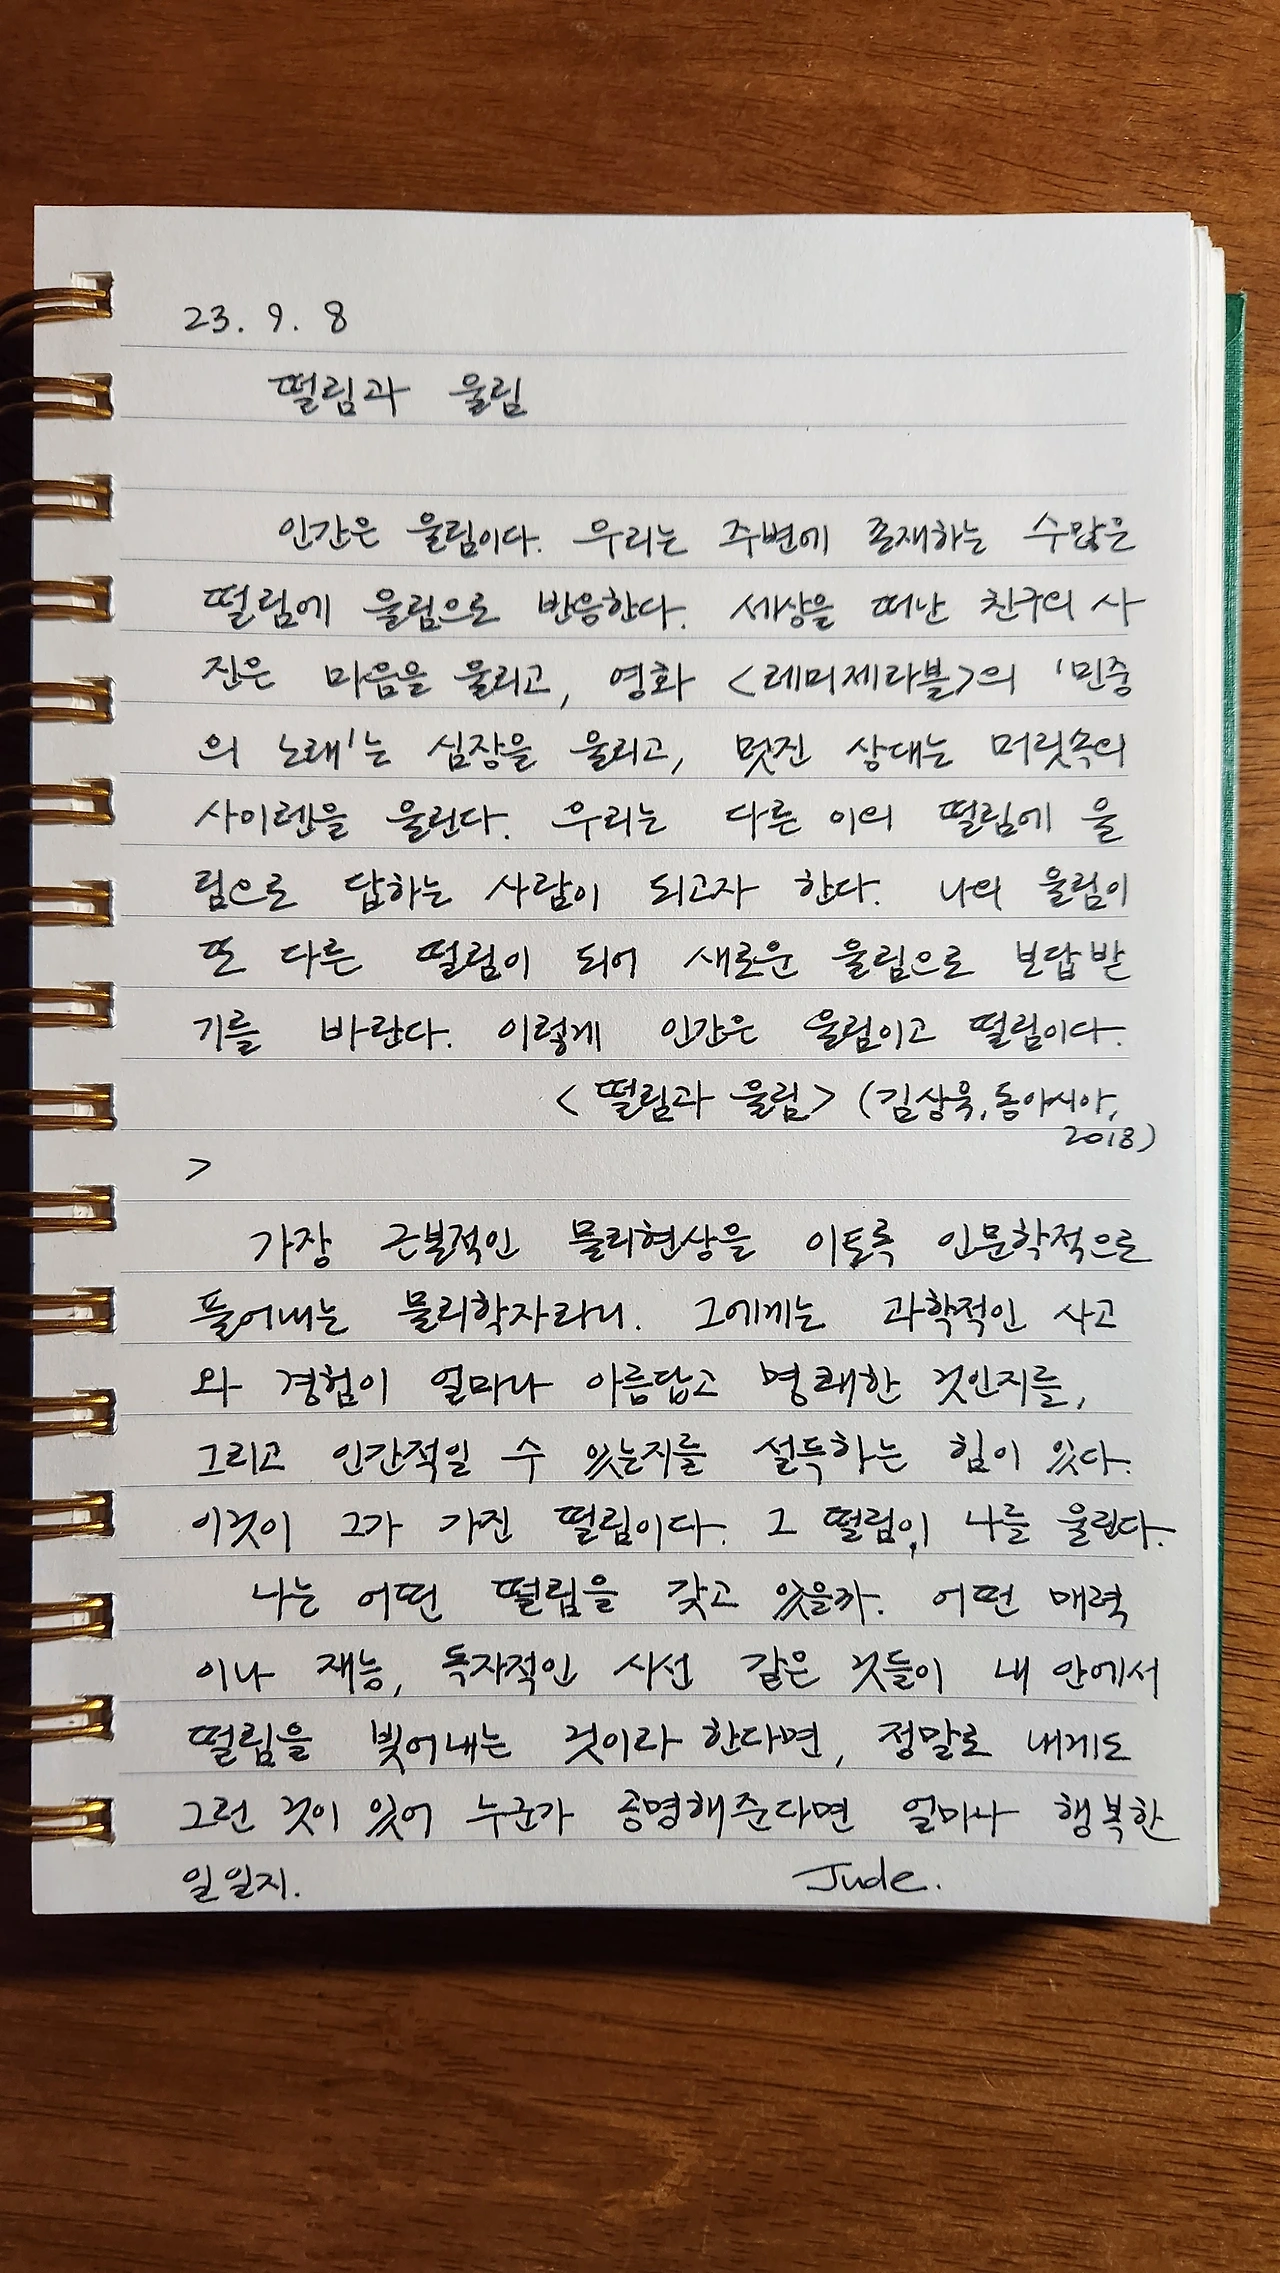 23. 9. 8
떨림과 울림
인간은 울림이다. 우리는 주변에 존재하는 수많은
떨림에 울림으로 반응한다. 세상을 떠난 친구의 사
진은 마음을 울리고, 영화 <레미제라블>의 '민중
의 노래'는 심장을 울리고, 멋진 상대는 머릿속의
사이렌을 울린다. 우리는 다른 이의 떨림에 울
림으로 답하는 사람이 되고자 한다. 나의 울림이
또 다른 떨림이 되어 새로운 울림으로 보답받
기를 바란다. 이렇게 인간은 울림이고 떨림이다.
<떨림과 울림> (김상욱, 동아시아,
2018)
>
가장 근본적인 물리현상을 이토록 인문학적으로
풀어내는 물리학자라니. 그에게는 과학적인 사고
와 경험이 얼마나 아름답고 명쾌한 것인지를,
그리고 인간적일 수 있는지를 설득하는 힘이 있다.
이것이 그가 가진 떨림이다. 그 떨림이 나를 울린다.
나는 어떤 떨림을 갖고 있을까. 어떤 매력
이나 재능, 독자적인 시선 같은 것들이 내 안에서
떨림을 빚어내는 것이라 한다면, 정말로 내게도
그런 것이 있어 누군가 증명해준다면 얼마나 행복한
일일지. Jude.